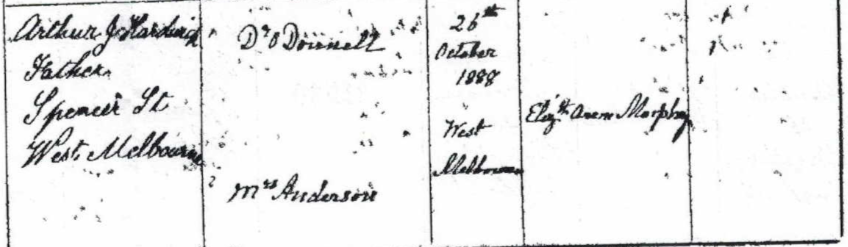 Arthur J. Harding
Father
Spencer St
West Melbourne
Dr O'Donnell
Mrs Anderson
26th
October
1888
West
Melbourne
Elizth Murphy